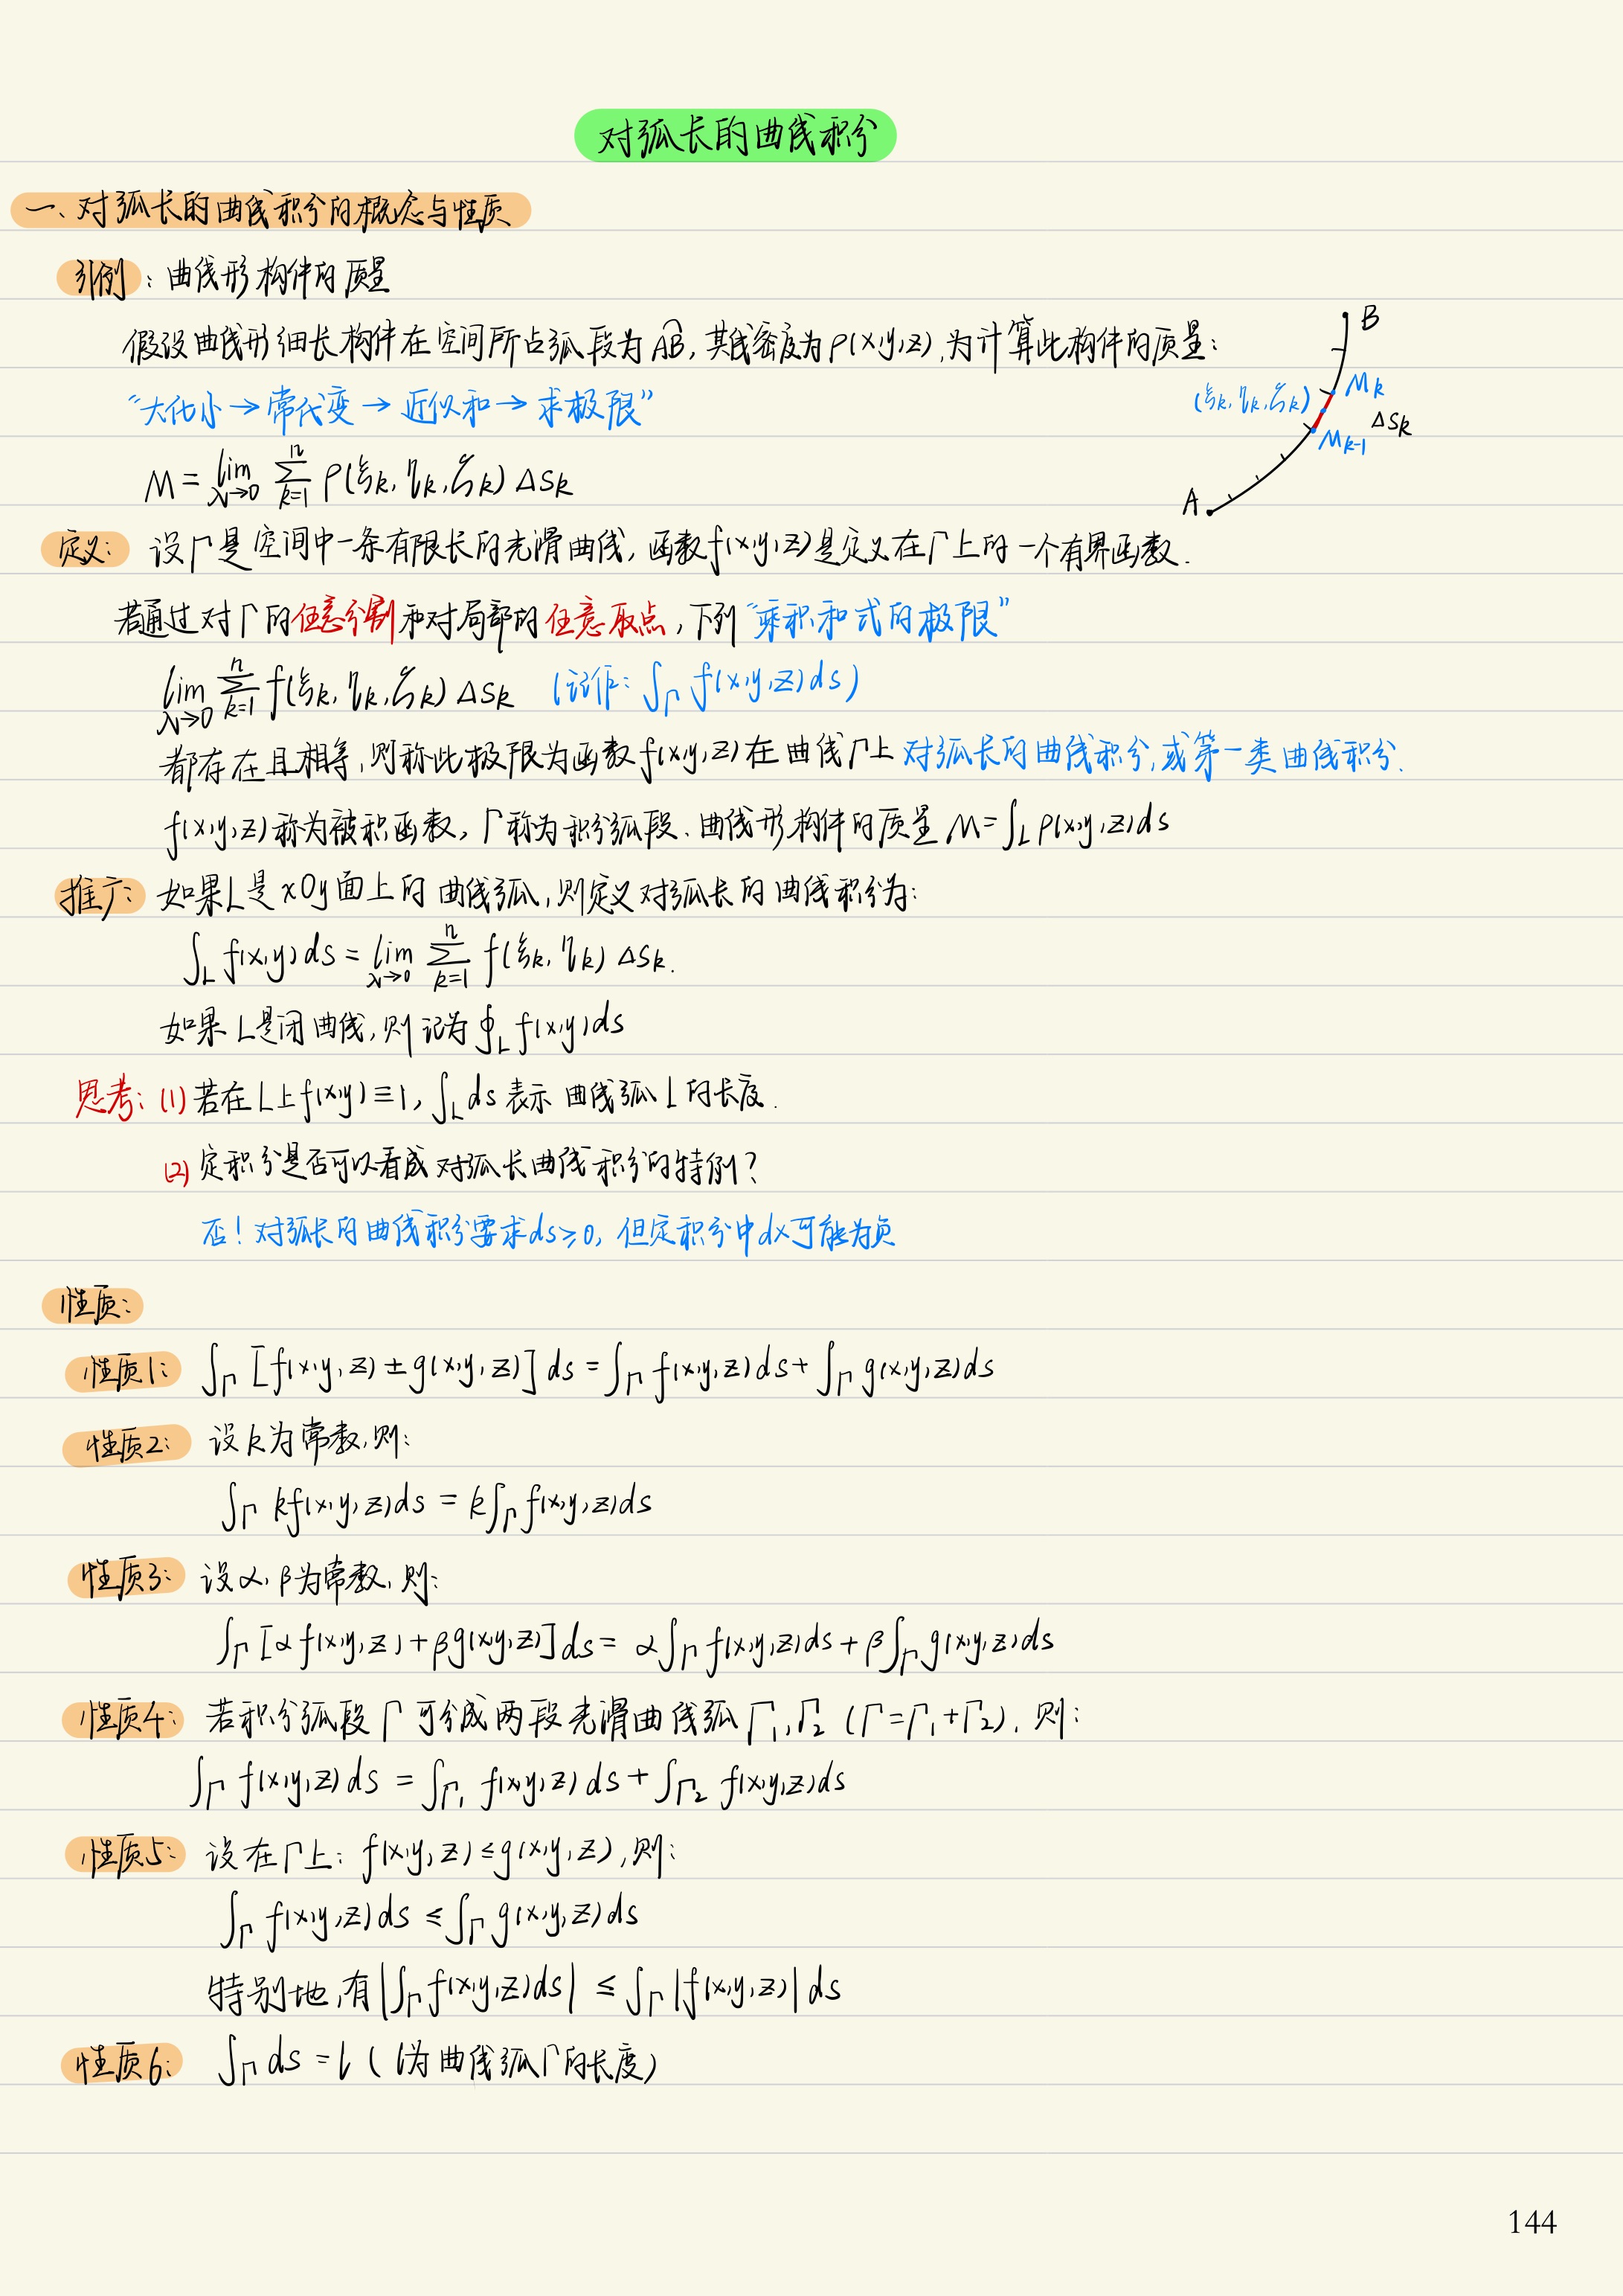 对弧长的曲线积分
一、对弧长的曲线积分的概念与性质
引例：曲线形构件的质量
假设曲线形细长构件在空间所占弧段为A͡B，其线密度为ρ(x,y,z)，为计算此构件的质量：
“大化小→常代变→近似和→求极限”
M = lim_{λ→0} Σ_{k=1}^{n} ρ(ξk, ηk, ζk) Δsk
B
Mk
(ξk, ηk, ζk)
Δsk
Mk-1
A
定义： 设Γ是空间中一条有限长的光滑曲线，函数f(x,y,z)是定义在Γ上的一个有界函数.
若通过对Γ的任意分割和对局部的任意取点，下列“乘积和式的极限”
lim_{λ→0} Σ_{k=1}^{n} f(ξk, ηk, ζk) Δsk (记作：∫_Γ f(x,y,z)ds)
都存在且相等，则称此极限为函数f(x,y,z)在曲线Γ上对弧长的曲线积分，或第一类曲线积分.
f(x,y,z)称为被积函数，Γ称为积分弧段.曲线形构件的质量M=∫_L ρ(x,y,z)ds
推广： 如果L是xOy面上的曲线弧，则定义对弧长的曲线积分为：
∫_L f(x,y)ds = lim_{λ→0} Σ_{k=1}^{n} f(ξk, ηk) Δsk.
如果L是闭曲线，则记为∮_L f(x,y)ds
思考：(1)若在L上f(x,y)≡1，∫_L ds表示曲线弧L的长度.
(2)定积分是否可以看成对弧长曲线积分的特例？
否！对弧长的曲线积分要求ds≥0，但定积分中dx可能为负
性质：
性质1： ∫_Γ [f(x,y,z)±g(x,y,z)]ds = ∫_Γ f(x,y,z)ds + ∫_Γ g(x,y,z)ds
性质2： 设k为常数，则：
∫_Γ kf(x,y,z)ds = k∫_Γ f(x,y,z)ds
性质3： 设α，β为常数，则：
∫_Γ [αf(x,y,z)+βg(x,y,z)]ds = α∫_Γ f(x,y,z)ds + β∫_Γ g(x,y,z)ds
性质4： 若积分弧段Γ可分成两段光滑曲线弧Γ1，Γ2 (Γ=Γ1+Γ2)，则：
∫_Γ f(x,y,z)ds = ∫_Γ1 f(x,y,z)ds + ∫_Γ2 f(x,y,z)ds
性质5： 设在Γ上：f(x,y,z)≤g(x,y,z)，则：
∫_Γ f(x,y,z)ds ≤ ∫_Γ g(x,y,z)ds
特别地，有|∫_Γ f(x,y,z)ds| ≤ ∫_Γ |f(x,y,z)|ds
性质6： ∫_Γ ds = l (l为曲线弧Γ的长度)
144